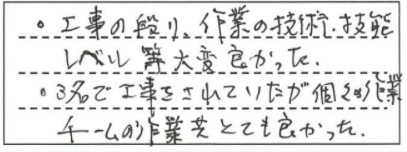 。工事の段り、作業の技術、技能
レベル等大変良かった。
。3名で工事をされていたが個々の作業
チームの作業共とても良かった。